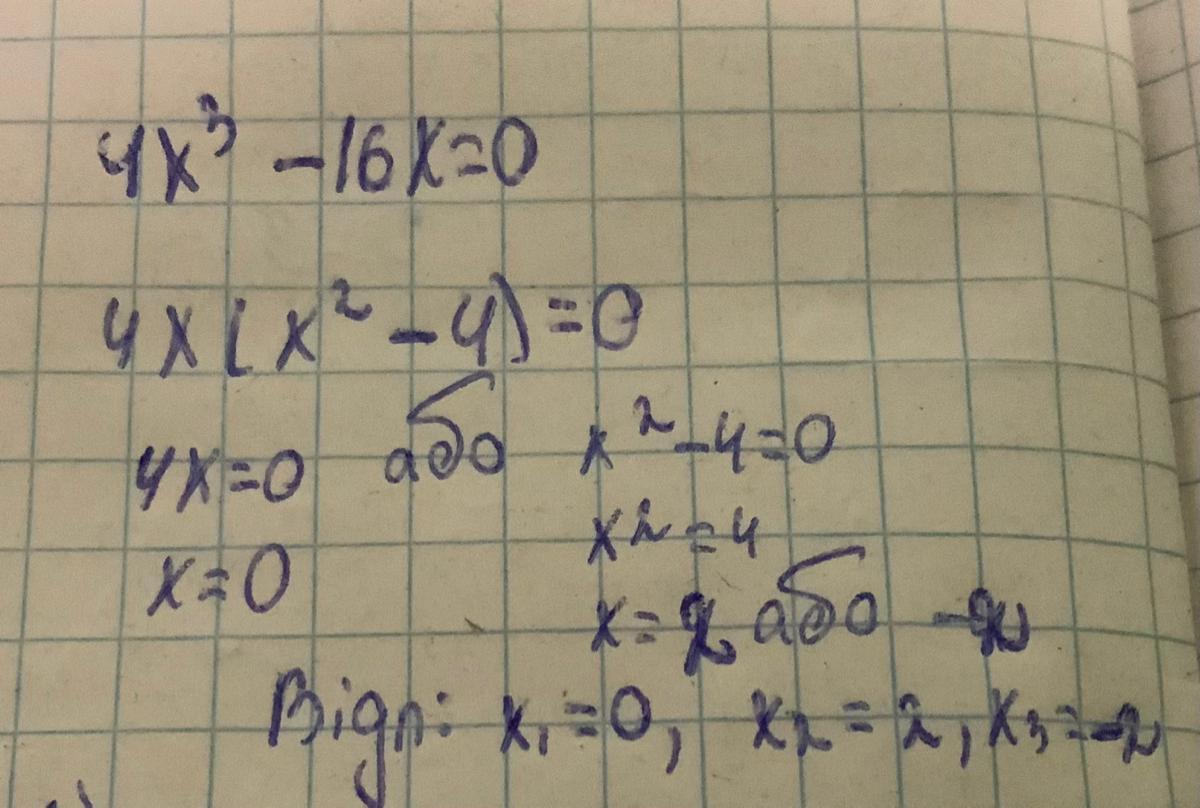 4x³ - 16x = 0
4x(x² - 4) = 0
4x = 0 або x² - 4 = 0
x² = 4
x = 0
x = 2 або -2
Відп: x₁ = 0, x₂ = 2, x₃ = -2